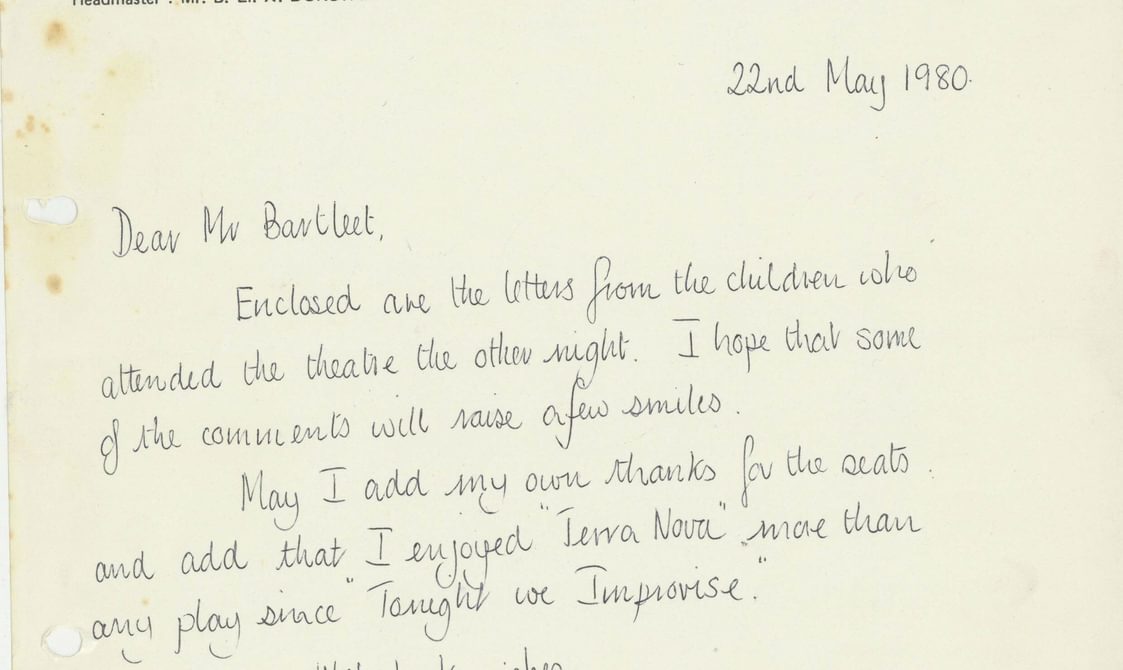 Headmaster : Mr.
22nd May 1980.
Dear Mr Bartleet,
Enclosed are the letters from the children who
attended the theatre the other night. I hope that some
of the comments will raise a few smiles.
May I add my own thanks for the seats.
and add that I enjoyed "Terra Nova" more than
any play since "Tonight we Improvise."